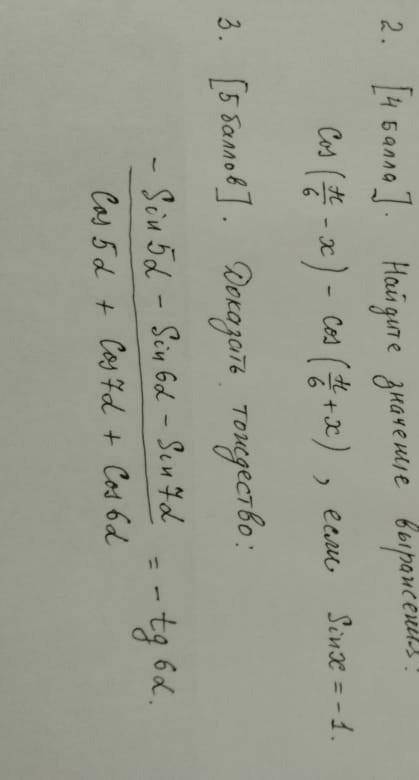 2. [4 балла]. Найдите значение выражения:
cos(π/6 - x) - cos(π/6 + x), если Sinx = -1.
3. [5 баллов]. Доказать тождество:
- Sin5α - Sin6α - Sin7α
= - tg6α.
Cos5α + Cos7α + Cos6α